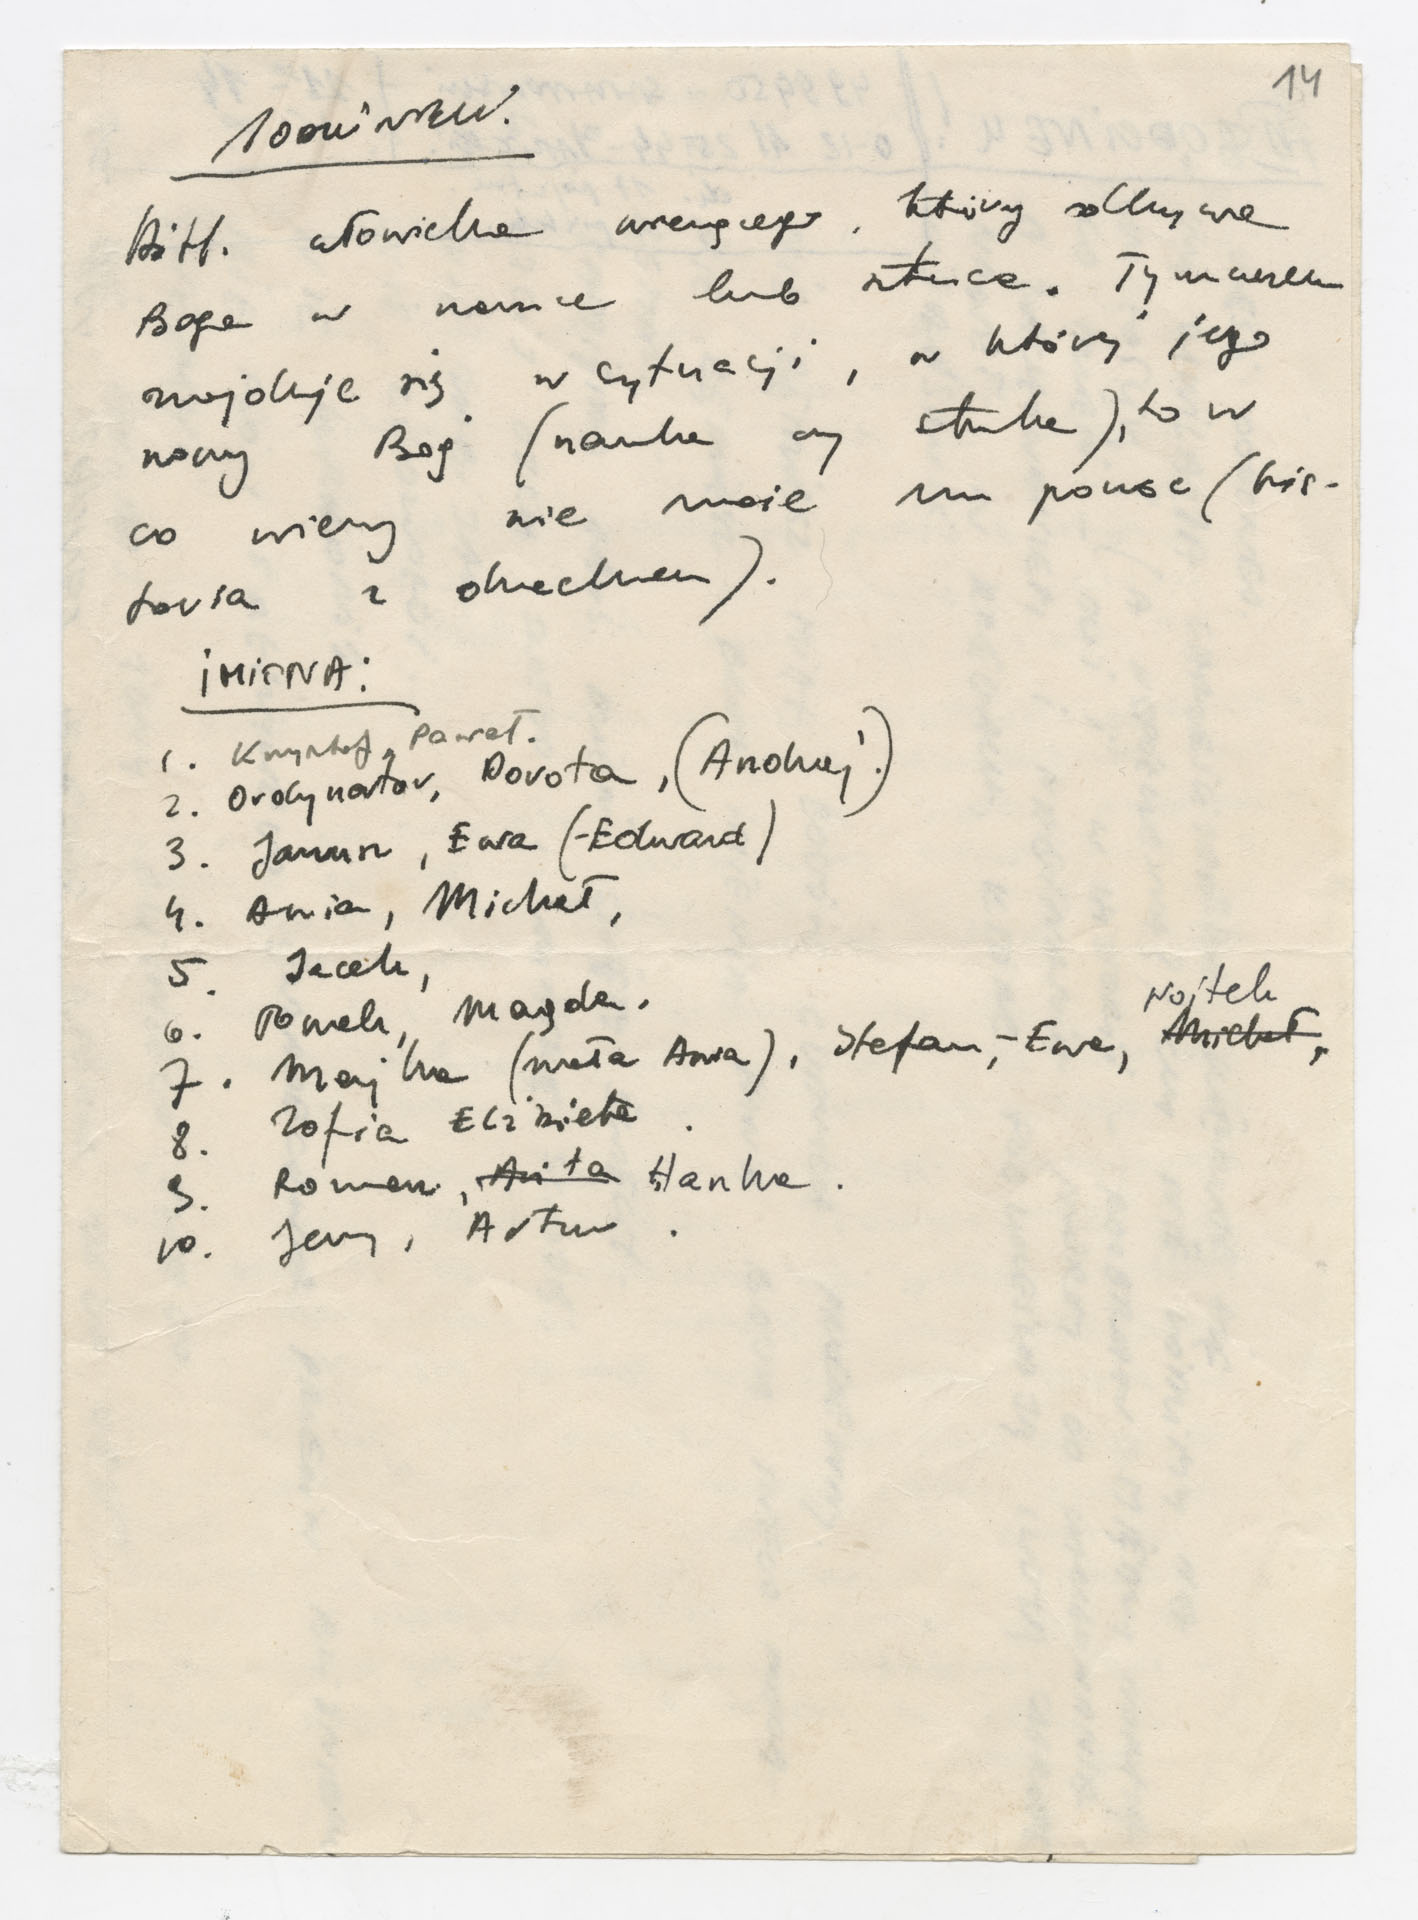 14
Hist. człowieka wierzącego, który odkrywa
Boga w nauce lub sztuce. Tymczasem
znajduje się w sytuacji, w której jego
nowy Bóg (nauka czy sztuka), to w
co wierzy nie może mu pomóc (his-
toria z dzieckiem).
iMiONA:
1. Krzysztof, Paweł.
2. Ordynator, Dorota, (Andrzej.)
3. Janusz, Ewa (-Edward)
4. Ania, Michał,
5. Jacek,
6. Tomek, Magda.
7. Majka (mała Ania), Stefan,- Ewa, Wojtek Michał,
8. Zofia Elżbieta.
9. Roman, Anita Hanka.
10. Jerzy, Artur.